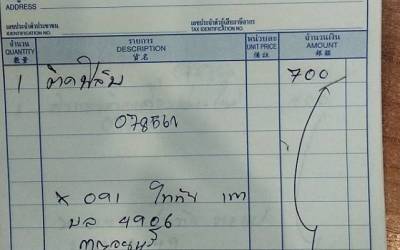 ที่อยู่
ADDRESS
เลขประจำตัวประชาชน
IDENTIFICATION NO.
เลขประจำตัวผู้เสียภาษีอากร
TAX IDENTIFICATION NO.
จำนวน รายการ หน่วยละ จำนวนเงิน
QUANTITY DESCRIPTION UNIT PRICE AMOUNT
數量 貨名 價錢 銀額
1 ติดฟิล์ม 700
078561
x 091
บล 4906
กาญจนบุรี